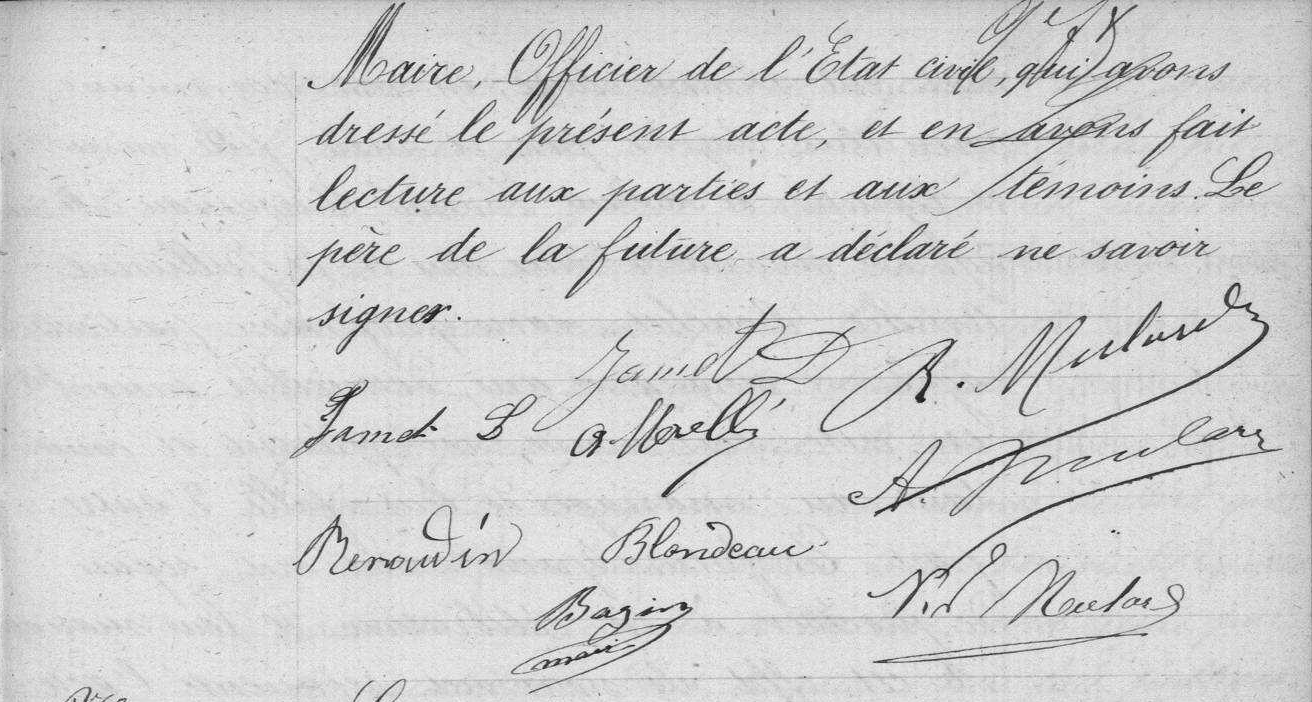 Maire, Officier de l'Etat civil, qui avons
dressé le présent acte, et en avons fait
lecture aux parties et aux témoins. Le
père de la future a déclaré ne savoir
signer.
Jamet D
R.
Jamet L
A.
Renaudin Blondeau
Bazin
maire